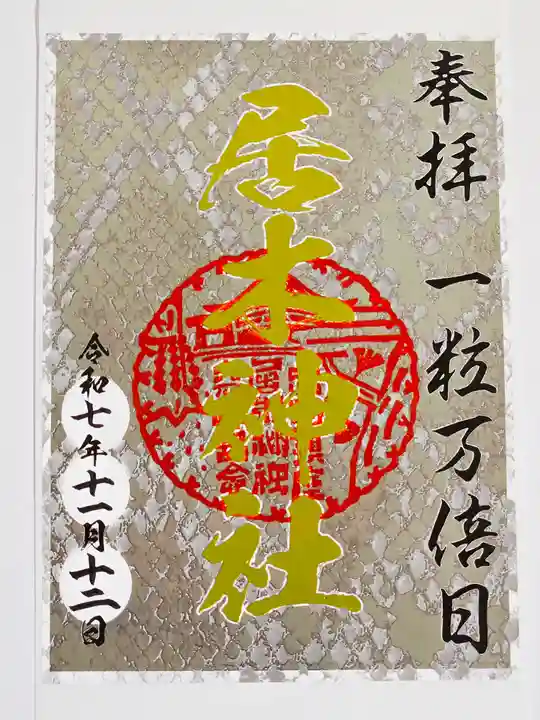 奉拝 一粒万倍日
居木神社
令和七年十一月十二日